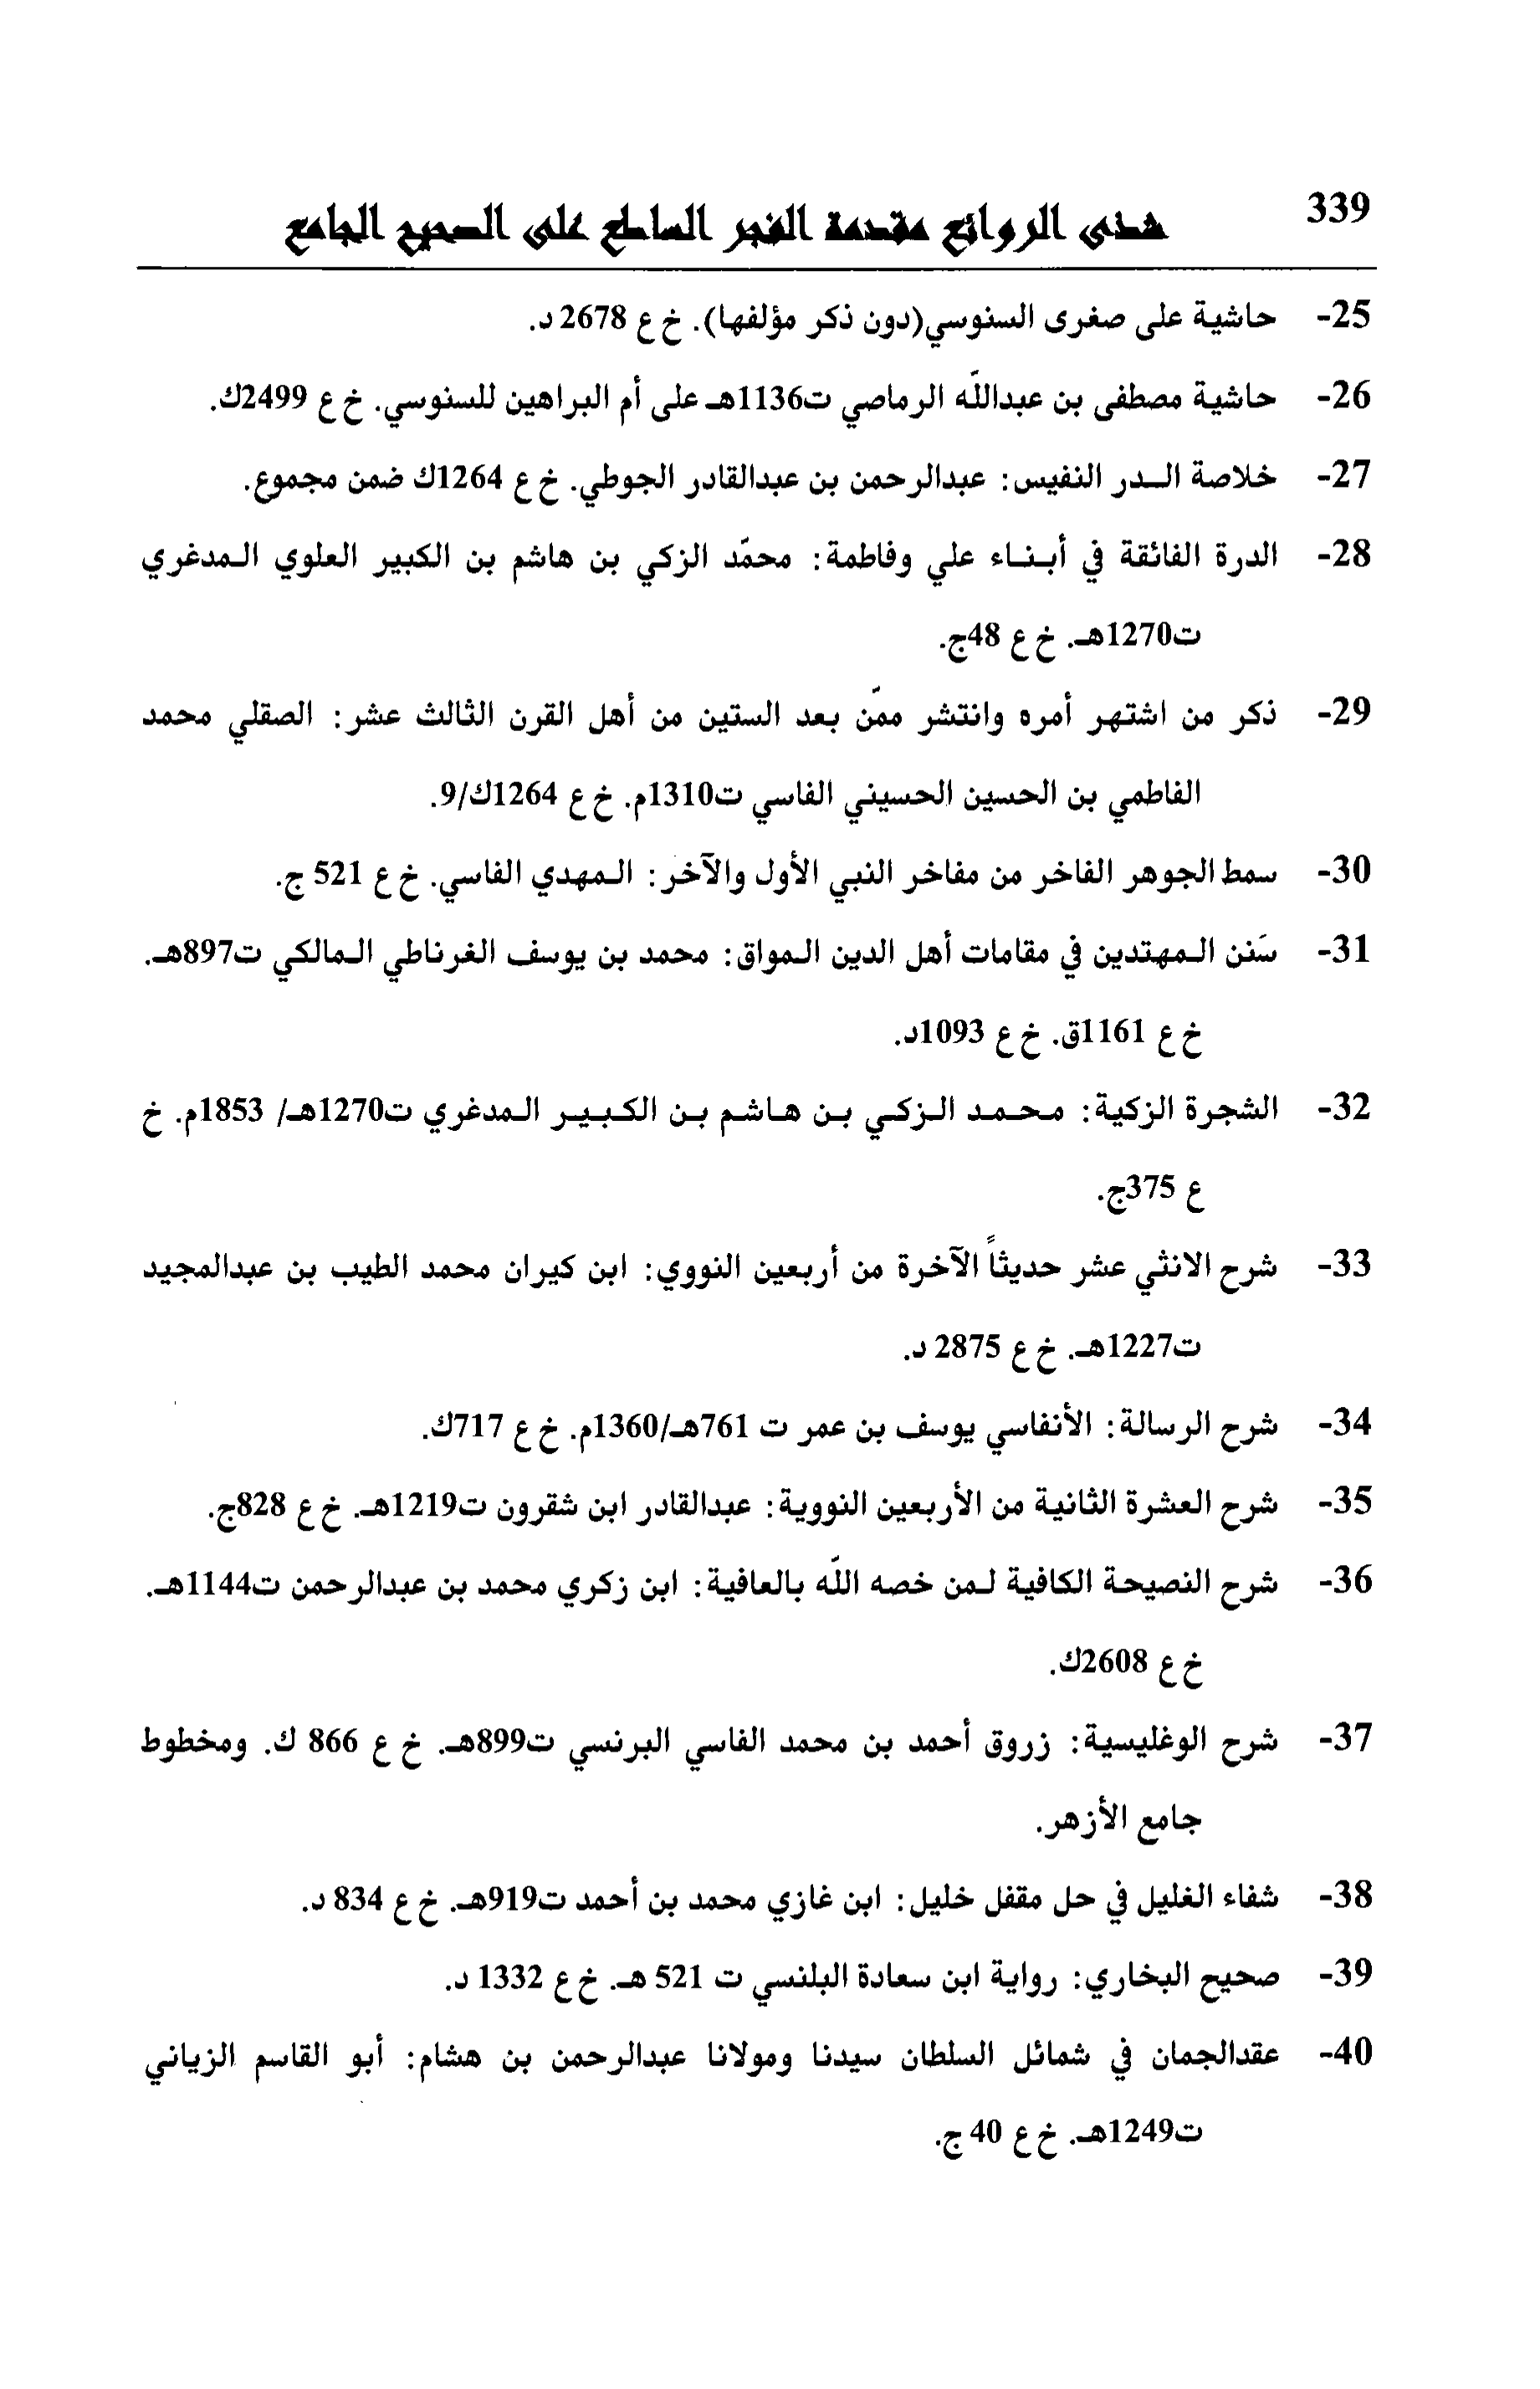 339
شذى الروائح مقدمة الفجر الساطع على الصحيح الجامع
25- حاشية على صغرى السنوسي(دون ذكر مؤلفها). خ ع 2678 د.
26- حاشية مصطفى بن عبدالله الرماصي ت1136هـ على أم البراهين للسنوسي. خ ع 2499ك.
27- خلاصة الـدر النفيس: عبدالرحمن بن عبدالقادر الجوطي. خ ع 1264ك ضمن مجموع.
28- الدرة الفائقة في أبـنـاء علي وفاطمة: محمّد الزكي بن هاشم بن الكبير العلوي الـمدغري
ت1270هـ. خ ع 48ج.
29- ذكر من اشتهر أمره وانتشر ممّن بعد الستين من أهل القرن الثالث عشر: الصقلي محمد
الفاطمي بن الحسين الحسيني الفاسي ت1310م. خ ع 1264ك/9.
30- سمط الجوهر الفاخر من مفاخر النبي الأول والآخر: الـمهدي الفاسي. خ ع 521 ج.
31- سَنن الـمهتدين في مقامات أهل الدين الـمواق: محمد بن يوسف الغرناطي الـمالكي ت897هـ.
خ ع 1161ق. خ ع 1093د.
32- الشجرة الزكية: مـحـمـد الـزكـي بـن هـاشـم بـن الكـبـيـر الـمدغري ت1270هـ/ 1853م. خ
ع 375ج.
33- شرح الانثي عشر حديثاً الآخرة من أربعين النووي: ابن كيران محمد الطيب بن عبدالمجيد
ت1227هـ. خ ع 2875 د.
34- شرح الرسالة: الأنفاسي يوسف بن عمر ت 761هـ/1360م. خ ع 717ك.
35- شرح العشرة الثانية من الأربعين النووية: عبدالقادر ابن شقرون ت1219هـ. خ ع 828ج.
36- شرح النصيحة الكافية لـمن خصه الله بالعافية: ابن زكري محمد بن عبدالرحمن ت1144هـ.
خ ع 2608ك.
37- شرح الوغليسية: زروق أحمد بن محمد الفاسي البرنسي ت899هـ. خ ع 866 ك. ومخطوط
جامع الأزهر.
38- شفاء الغليل في حل مقفل خليل: ابن غازي محمد بن أحمد ت919هـ. خ ع 834 د.
39- صحيح البخاري: رواية ابن سعادة البلنسي ت 521 هـ. خ ع 1332 د.
40- عقدالجمان في شمائل السلطان سيدنا ومولانا عبدالرحمن بن هشام: أبو القاسم الزياني
ت1249هـ. خ ع 40 ج.